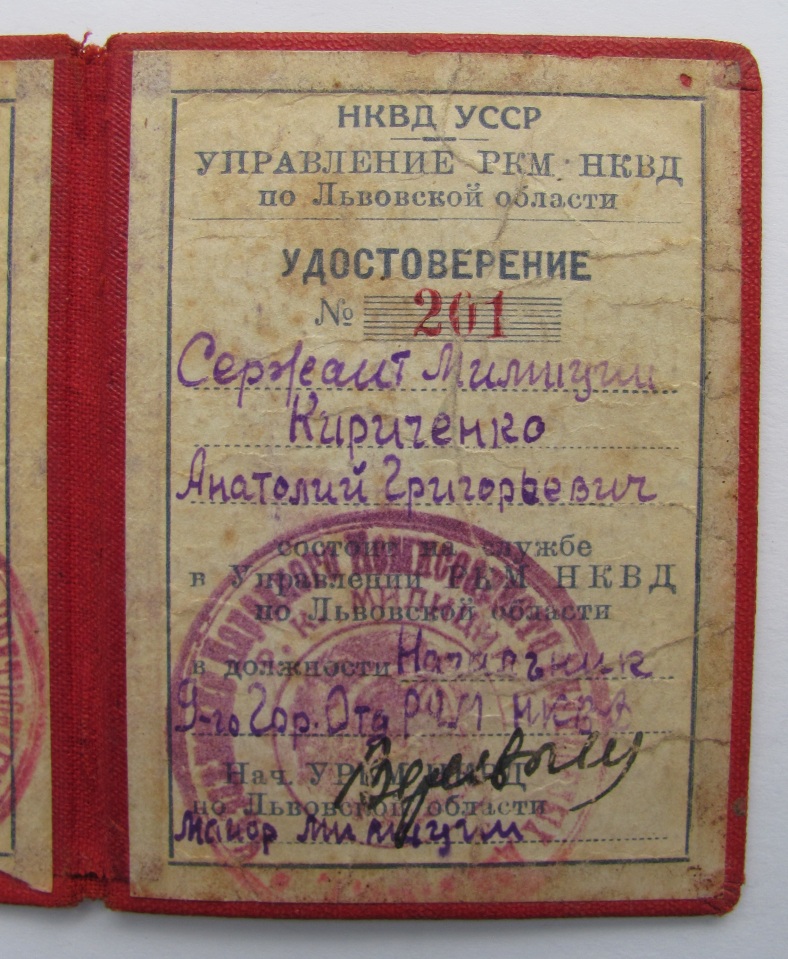 НКВД УССР
УПРАВЛЕНИЕ РКМ НКВД
по Львовской области
УДОСТОВЕРЕНИЕ
№ 201
Сержант Милиции
Кириченко
Анатолий Григорьевич
состоит на службе
в Управлении РКМ НКВД
по Львовской области
в должности Начальник
9-го Гор. Отд РКМ НКВД
Нач. УРКМ НКВД
по Львовской области
майор милиции